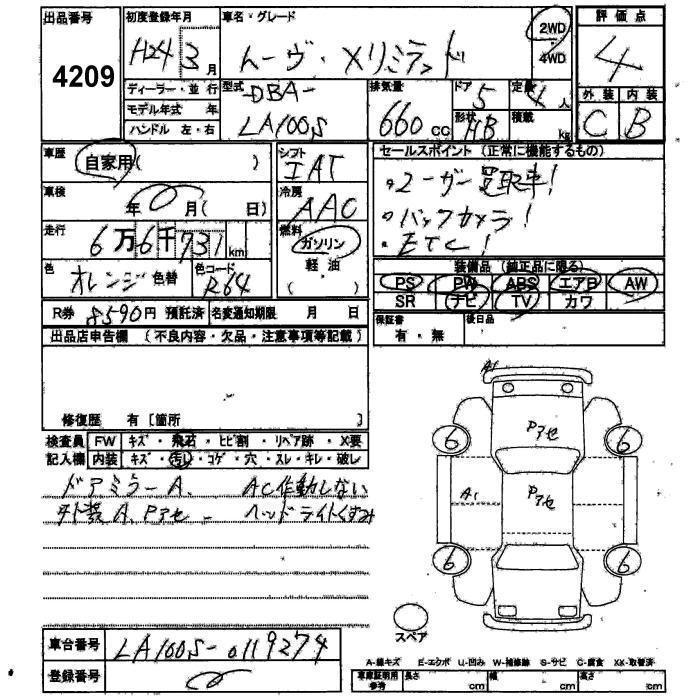 出品番号
4209
初度登録年月
H24 3 月
車名・グレード
ムーヴ・Xリミテッド
2WD
4WD
評価点
4
ディーラー・並 行
モデル年式 年
ハンドル 左・右
型式
DBA-
LA100S
排気量
660 cc
ドア
5
形状
HB
定員
4 人
積載
kg
外装 内装
C B
車歴
自家用( )
車検
年 月( 日)
走行
6万6千731km
色
オレンジ 色替
色コード
R64
シフト
IAT
冷房
AAC
燃料
ガソリン
軽・油
( )
セールスポイント (正常に機能するもの)
・ユーザー買取車!
・バックカメラ!
・ETC!
装備品 (純正品に限る)
PS PW ABS エアB AW
SR ナビ TV カワ
R券 8590円 預託済 名変通知期限 月 日
保証書
有・無
後日品
出品店申告欄 (不良内容・欠品・注意事項等記載)
修復歴 有〔箇所 〕
検査員
記入欄
FW キズ・飛石・ヒビ割・リペア跡・X要
内装 キズ・汚れ・コゲ・穴・スレ・キレ・破レ
ドアミラーA. AC作動しない
外装A、Pアセ ヘッドライトくすみ
A1
Pアセ
6 6
A1
Pアセ
6 6
スペア
車台番号
LA100S-0119274
登録番号
A-線キズ E-エクボ U-凹み W-補修跡 S-サビ C-腐食 XX-取替済
車庫証明用
参考
長さ cm 幅 cm 高さ cm